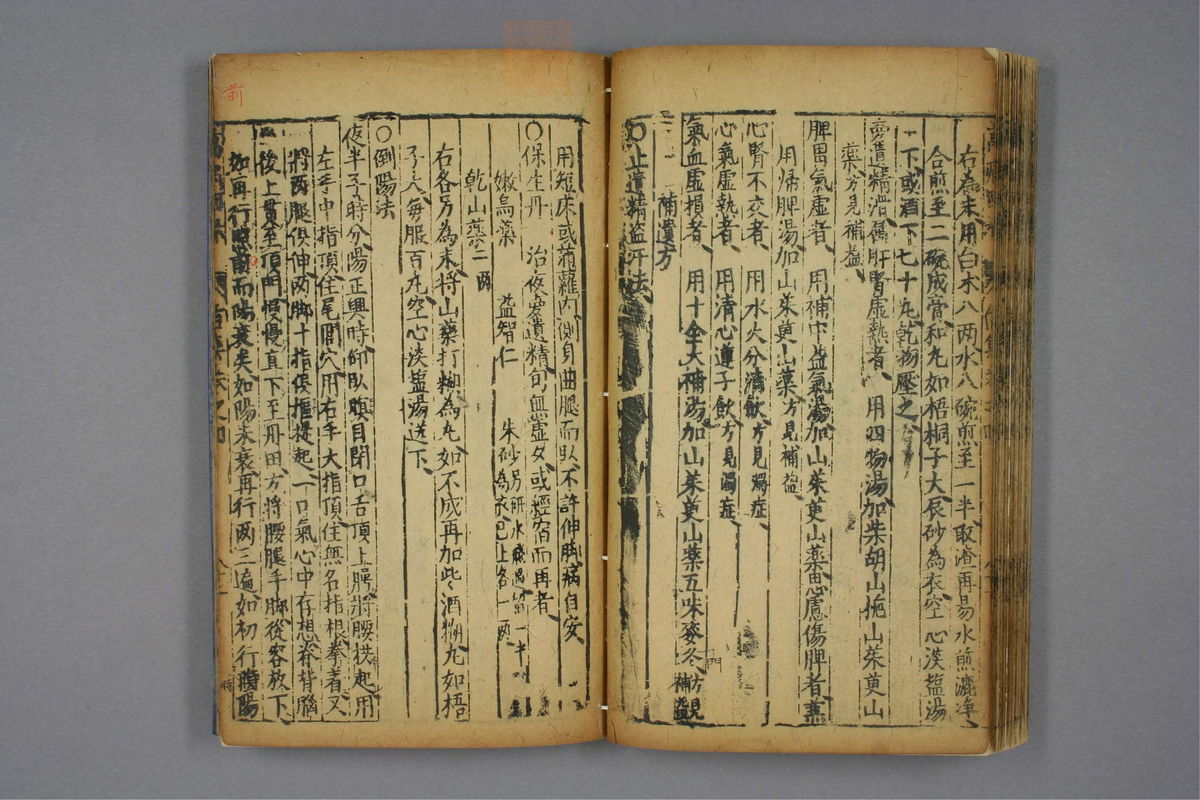 右為末用白朮八两水八碗煎至一半取渣再易水煎漉淨
合煎至二碗成膏和丸如梧桐子大辰砂為衣空心淡盐湯
下或酒下七十丸乾物壓之
夢遺精滑屬肝腎虛熱者 用四物湯加柴胡山梔山茱萸山
藥方見補益
脾胃氣虛者 用補中益氣湯加山茱萸山藥思慮傷脾者兼
用帰脾湯加山茱萸山藥方見補益
心腎不交者 用水火分清飲方見濁症
心氣虛熱者 用清心蓮子飲方見濁症
氣血虛損者 用十全大補湯加山茱萸山藥五味麥冬方見補益
補遺方
○止遺精盗汗法
用短床或蒲蘿內側身曲腿而卧不許伸脚病自安
○保生丹 治夜夢遺精旬血虛夕或經宿而再者
嫩烏藥 益智仁 朱砂另研水飛過留一半為衣已上各一两
乾山藥二两
右各另為末將山藥打糊為丸如不成再加此酒糊丸如梧
子大每服百丸空心淡盐湯送下
○倒陽法
夜半子時分陽正興時仰卧瞑目閉口舌頂上腭將腰拱起用
左手中指頂住尾閭穴用右手大指頂住無名指根拳着又
將两腿俱伸两脚十指俱摳提起一口氣心中存想脊背腦
後上貫至頂門慢慢直下至丹田方將腰腿手脚從容放下
如再行照前而陽衰矣如陽未衰再行两三遍如初行時陽
前